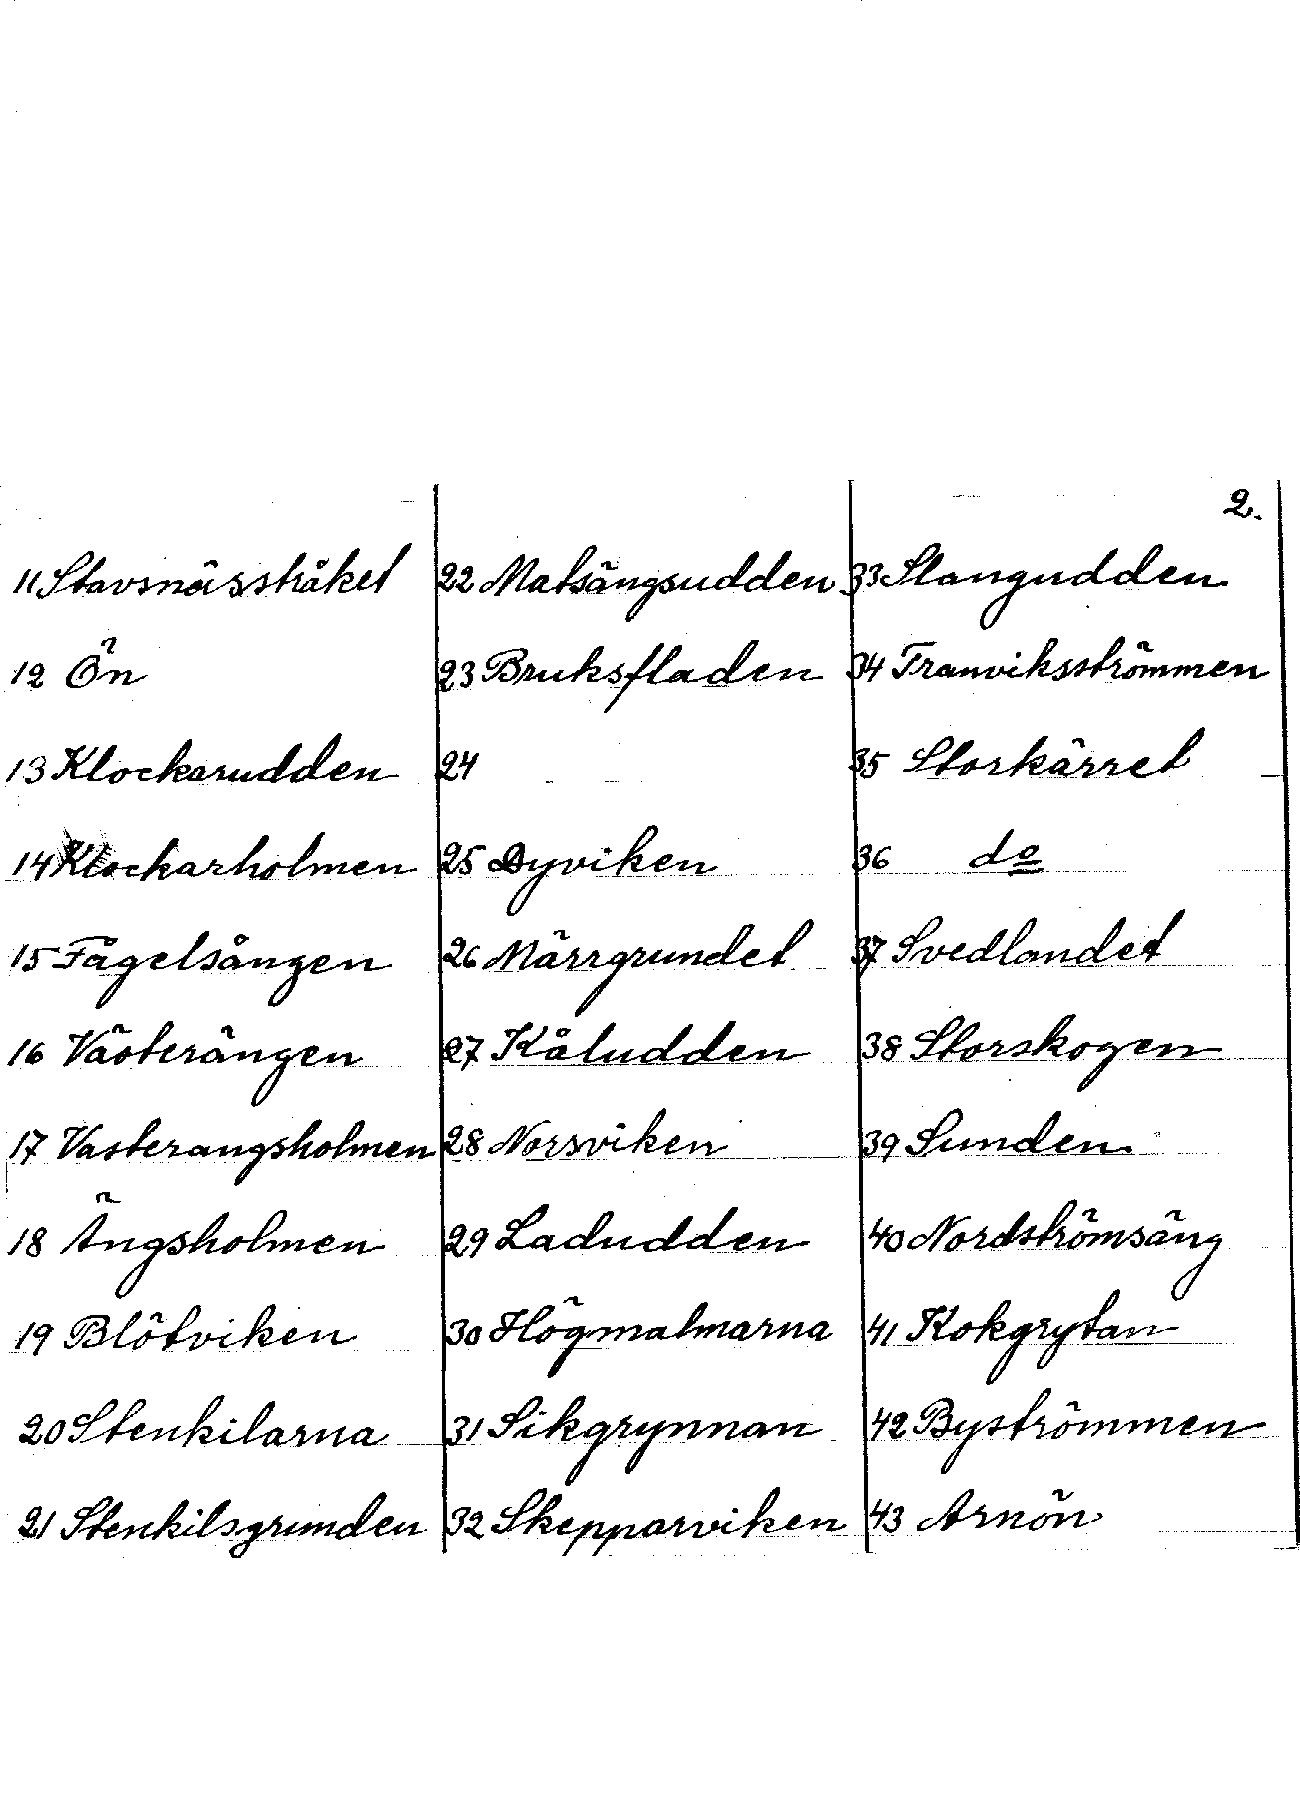 2.
11 Stavsnässtråket
12 Ön
13 Klockarudden
14 Klockarholmen
15 Fågelsången
16 Västerängen
17 Vasterangsholmen
18 Ängsholmen
19 Blötviken
20 Stenkilarna
21 Stenkilsgrunden
22 Matsängsudden
23 Bruksfladen
24
25 Dyviken
26 Märrgrundet
27 Kåludden
28 Norsviken
29 Ladudden
30 Högmalmarna
31 Sikgrynnan
32 Skepparviken
33 Stangudden
34 Tranviksströmmen
35 Storkärret
36 do
37 Svedlandet
38 Storskogen
39 Sunden
40 Nordströmsäng
41 Kokgrytan
42 Byströmmen
43 Arnön